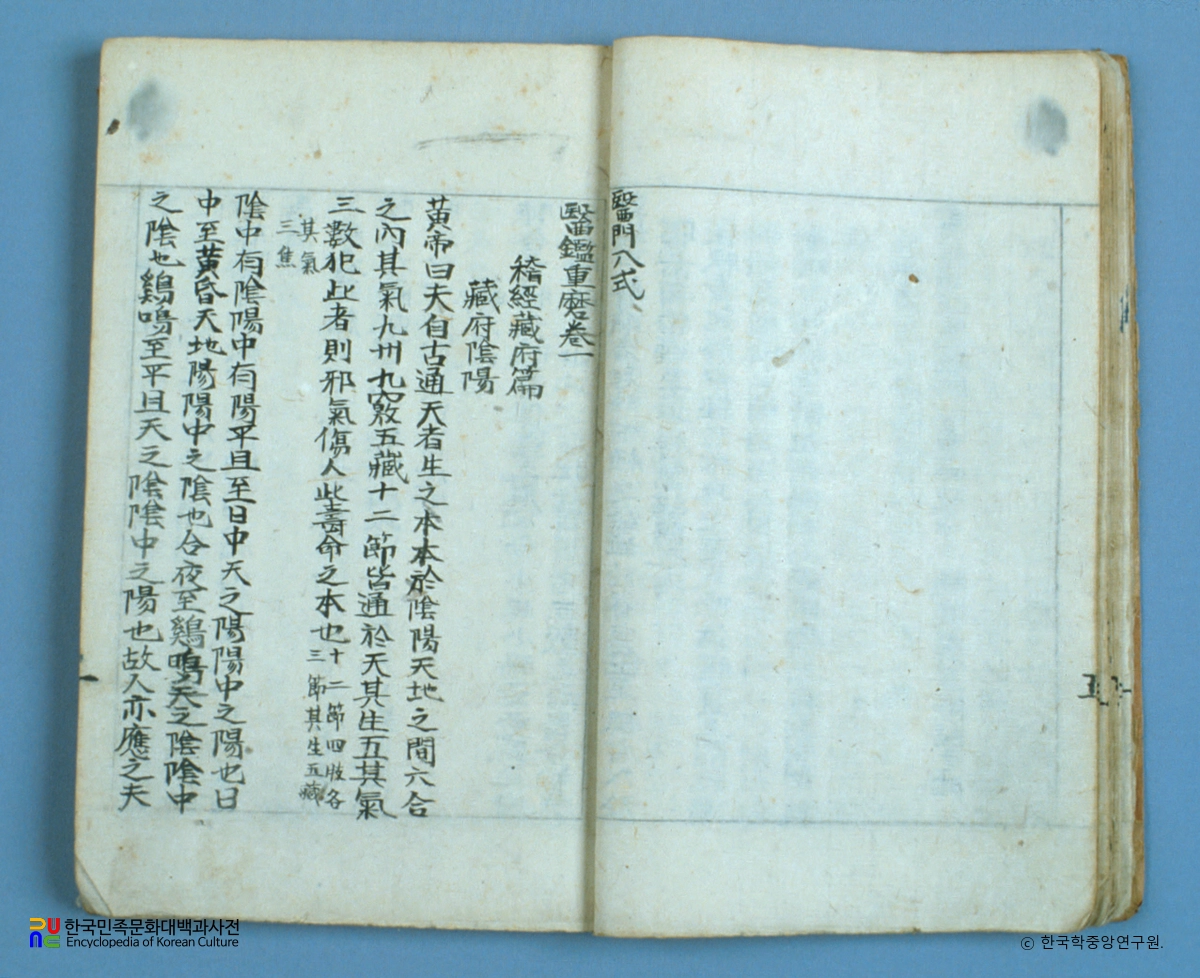 醫門八式
醫鑑重磨卷一
稽經藏府篇
藏府陰陽
黃帝曰夫自古通天者生之本本於陰陽天地之間六合
之內其氣九州九竅五藏十二節皆通於天其生五其氣
三數犯此者則邪氣傷人此壽命之本也十二節四肢各
三節其生五藏
其氣
三焦
陰中有陰陽中有陽平旦至日中天之陽陽中之陽也日
中至黃昏天地陽陽中之陰也合夜至鷄鳴天之陰陰中
之陰也鷄鳴至平旦天之陰陰中之陽也故人亦應之夫
한국민족문화대백과사전
Encyclopedia of Korean Culture
© 한국학중앙연구원.